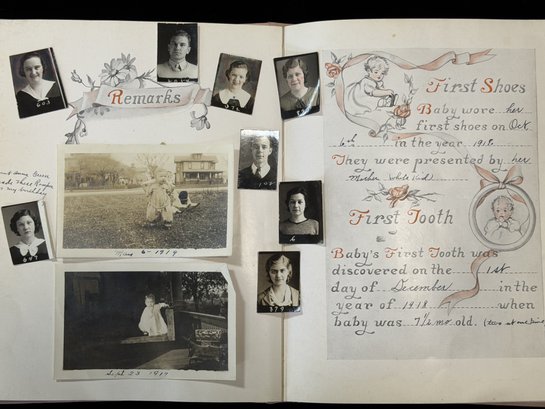 Remarks
603
576
made these Rompers
for my birthday
647
6
379
May 6-1919
Sept 23-1919
First Shoes
Baby wore her
first shoes on Oct
6th in the year 1918
They were presented by her
Mother (White Kid)
First Tooth
Baby's First Tooth was
discovered on the 1st
day of December in the
year of 1918 when
baby was 7½ mo. old. (two at one time)